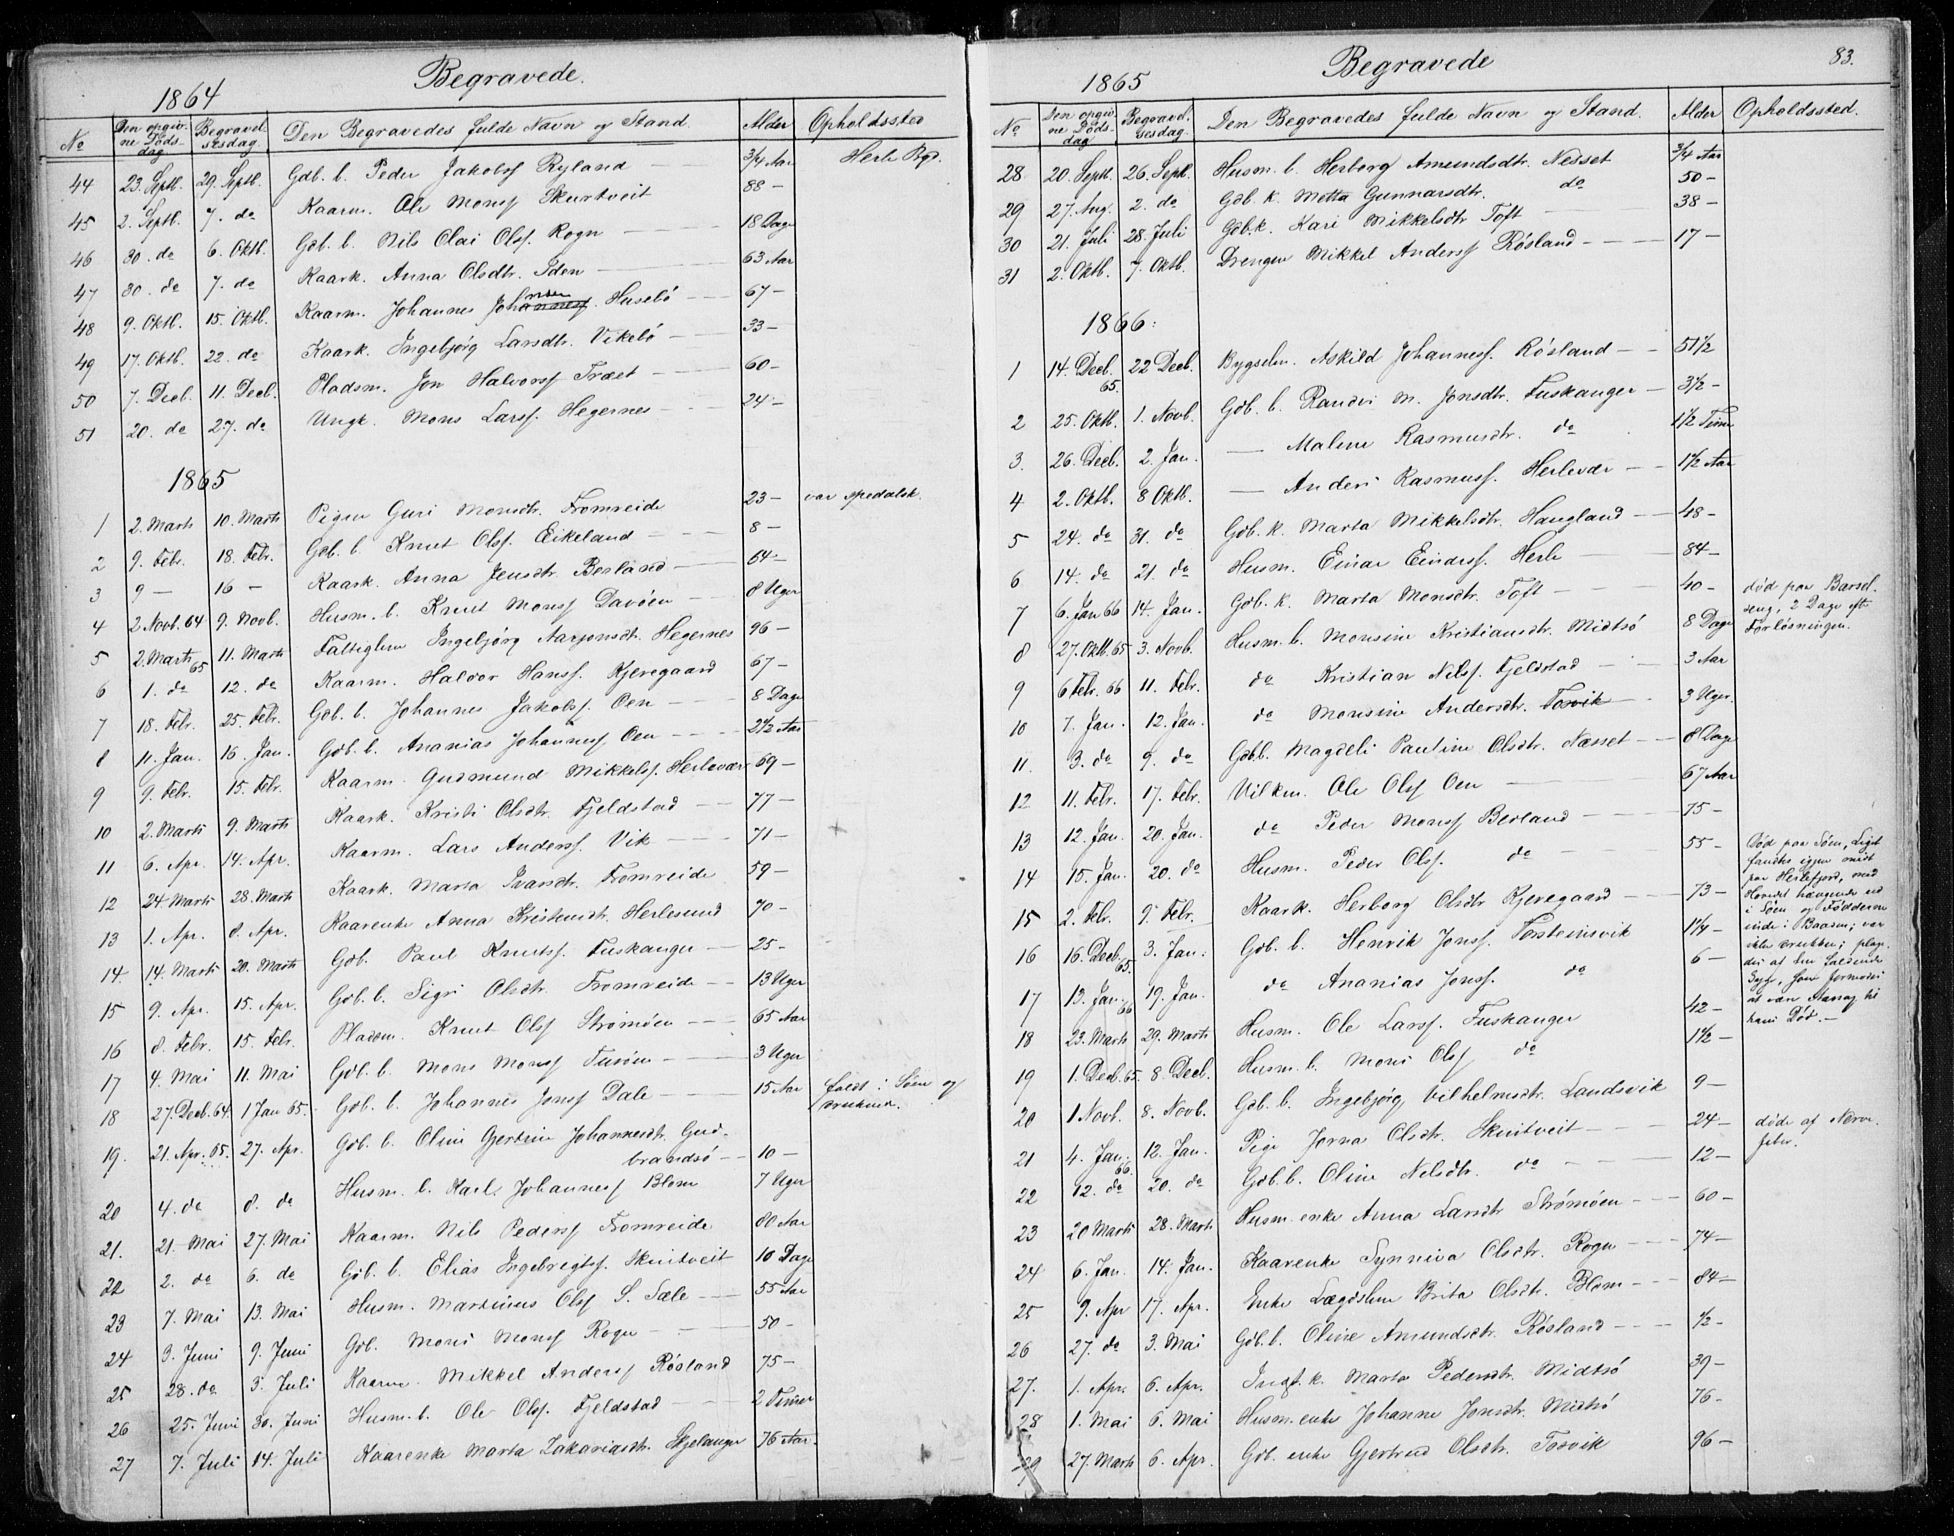 1864
Begravede.
No | Den opgiv-ne Dödsdag | Begravel-sesdag | Den Begravedes fulde Navn og Stand. | Alder | Opholdssted
44 23. Septb. 29. Septb. Gdb. b. Peder Jakobsf Ryland 3/4 Aar Herlø Pgd.
45 2. Septb. 7. do Kaarm. Ole Monsf Skurtveit 88 –
46 30. do 6. Oktb. Gdb. b. Nils Olai Olsf. Rogn 18 Dage
47 30. do 7. do Kaark. Anna Olsdtr. Iden 63 Aar
48 9. Oktb. 15. Oktb. Kaarm. Johannes Johannesf. Husebö 67 –
49 17. Oktb. 22. do Kaark. Ingebjörg Larsdtr. Vikebö 33 –
50 7. Decb. 11. Decb. Pladsm. Jon Halvorsf Træet 60 –
51 20. do 27. do Ungk. Mons Larsf. Hegernes 24 –
1865
1 2. Marts 10. Marts Pigen Guri Monsdtr. Fromreide 23 – var spedalsk.
2 9. Febr. 18. Febr. Gdb. b. Knut Olsf. Eikeland 8 –
3 9 – 16 – Kaark. Anna Jensdtr. Berland 64 –
4 2. Novb. 64 9. Novb. Husm. b. Knut Monsf Davöen 8 Uger
5 2. Marts 65 11. Marts Fattiglem Ingebjörg Aarjonsdtr. Hegernes 96 –
6 1. do 12. do Kaarm. Halvor Hansf. Kjeregaard 67 –
7 18. Febr. 25. Febr. Gdb. b. Johannes Jakobsf. Oen 8 Dage
8 11. Jan. 16. Jan. Gdb. b. Ananias Johannesf Oen 2 1/2 Aar
9 9. Febr. 15. Febr. Kaarm. Gudmund Mikkelsf. Herlövær 69 –
10 2. Marts 9. Marts Kaark. Kristi Olsdtr. Fjeldstad 77 –
11 6. Apr. 14. Apr. Kaarm. Lars Andersf. Vik 71 –
12 24. Marts 28. Marts Kaark. Marta Ivarsdtr. Fromreide 59 –
13 1. Apr. 8. Apr. Kaarenke Anna Kristensdtr. Herlesund 70 –
14. 14. Marts 20. Marts Gdb. Paul Knutsf. Fuskanger 25 –
15 9. Apr. 15. Apr. Gdb. b. Sigri Olsdtr. Fromreide 13 Uger
16 8. Febr. 15. Febr. Pladsm. Knut Olsf Strömöen 65 Aar
17 4. Mai 11. Mai Gdb. b. Mons Monsf Turöen 3 Uger
18 27. Decb. 64. 1 Jan 65. Gdb. b. Johannes Jonsf Dale 15 Aar faldt i Söen og druknede.
19. 21. Apr. 65. 27. Apr. Gdb. b. Oline Gjertine Johannesdtr. Gud-
brandsö 10 –
20 4. do 8. do Husm. b. Karl Johannesf Blom 7 Uger
21. 21. Mai 27. Mai Kaarm. Nils Pedersf Fromreide 80 Aar
22 2. do 6. do Gdb. b. Elias Ingebrigtsf. Skurtveit 10 Dage
23 7. Mai 13. Mai Husm. Martinus Olsf S. Sæle 55 Aar
24 3. Juni 9. Juni Gdb. Mons Monsf Rogn 50 –
25 28. do 3. Juli Kaarm. Mikkel Andersf Rösland 75 –
26 25. Juni 30. Juni Husm. b. Ole Olsf. Fjeldstad 2 Timer
27 7. Juli 14. Juli Kaarenke Marta Zakariasdtr. Skjelanger 76 Aar.
1865
Begravede
83.
No | Den opgiv-ne Dödsdag | Begravel-sesdag. | Den Begravedes fulde Navn og Stand. | Alder | Opholdssted.
28 20. Septb. 26. Septb. Husm. b. Herborg Amundsdtr. Nesset 3/4 Aar
29 27. Aug. 2. do Gdb. k. Metta Gunnarsdtr. do 50 –
30 21. Juli 28. Juli Gdb. k. Kari Mikkelsdtr Toft 38 –
31 2. Oktb. 7. Oktb. Drengen Mikkel Andersf Rösland 17 –
1866:
1 14. Decb. 65. 22 Decb. Bygselm. Askild Johannesf. Rösland 51 1/2
2 25. Oktb. 1. Novb. Gdb. b. Randi M. Jonsdtr. Fuskanger 3 1/2 –
3. 26. Decb. 2. Jan. — Malene Rasmusdtr. do 1 1/2 Time
4 2. Oktb. 8 Oktb. — Anders Rasmusf. Herlevær 1 1/2 Aar
5 24. do 31. do Gdb. k. Marta Mikkelsdtr. Haugland 48 –
6 14. do 21. do Husm. Einar Eindersf. Herlö 84 –
7 6. Jan 66 14. Jan. Gdb. k. Marta Monsdtr. Toft 40 – död paa Barsel-
seng, 2 Dage eft.
Forlösningen.
8 27. Oktb. 65 3. Novb. Husm. b. Monsine Kristiansdtr. Midtsö 8 Dage
9 6 Febr. 66 11. Febr. do Kristian Nilsf. Fjeldstad 3 Aar
10 7. Jan. 12. Jan. do Monsine Andersdtr. Tosvik 3 Uger.
11. 3. do 9. do Gdb. b. Magdeli Pauline Olsdtr. Næsset 8 Dage
12 11. Febr. 17. Febr. Vilkm. Ole Olsf Oen 67 Aar
13 12. Jan. 20. Jan. do Peder Monsf Berland 75 –
14 15. Jan. 20. do Husm. Peder Olsf. do 55 – Död paa Söen, Liget
fandtes igjen midt
paa Herlefjord, med
Hovedet hængende ud
i Söen og Födderne
inde i Baaden; var
ikke druknet; plag-
des at den faldende
Syge, som formodes
at være Aarsag til
hans Död. –
15 2. Febr. 9. Febr. Kaark. Herborg Olsdtr Kjeregaard 73 –
16 16. Decb. 65. 3. Jan. Gdb. b. Henrik Jonsf. Torsteinsvik 1 1/4 –
17 13. Jan. 66 19. Jan. do Ananias Jonsf. do 6 –
18 23. Marts 29. Marts Husm. Ole Larsf. Fuskanger 42 –
19 1. Decb. 65. 8. Decb. Husm. b. Mons Olsf do 1 1/2 –
20 1. Novb. 8. Novb. Gdb. b. Ingebjörg Vilhelmsdtr. Landsvik 9 –
21 4. Jan. 66. 12. Jan. Pige Jorna Olsdtr. Skurtveit 24 – döde af Nerve-
feber.
22 12. do 20. do Gdb. b. Oline Nilsdtr. do 12 –
23 20 Marts 28. Marts Husm. enke Anna Larsdtr Strömöen 60 –
24 6. Jan. 14. Jan. Kaarenke Synniva Olsdtr. Rogn 74 –
25 9. Apr 17. Apr. Enke Lægdslem Brita Olsdtr. Blom 84 –
26 27. do 3. Mai Gdb. b. Oline Amundsdtr. Rösland 1/2 –
27. 1. Apr. 6. Apr. Indf. k. Marta Pedersdtr. Midtsö 39 –
28 1. Mai 6. Mai Husm. enke Johanne Jonsdtr. Midtsö 76 –
29 27. Marts 6. Apr. Gdb. enke Gjertrud Olsdtr. Tosvik 96 –